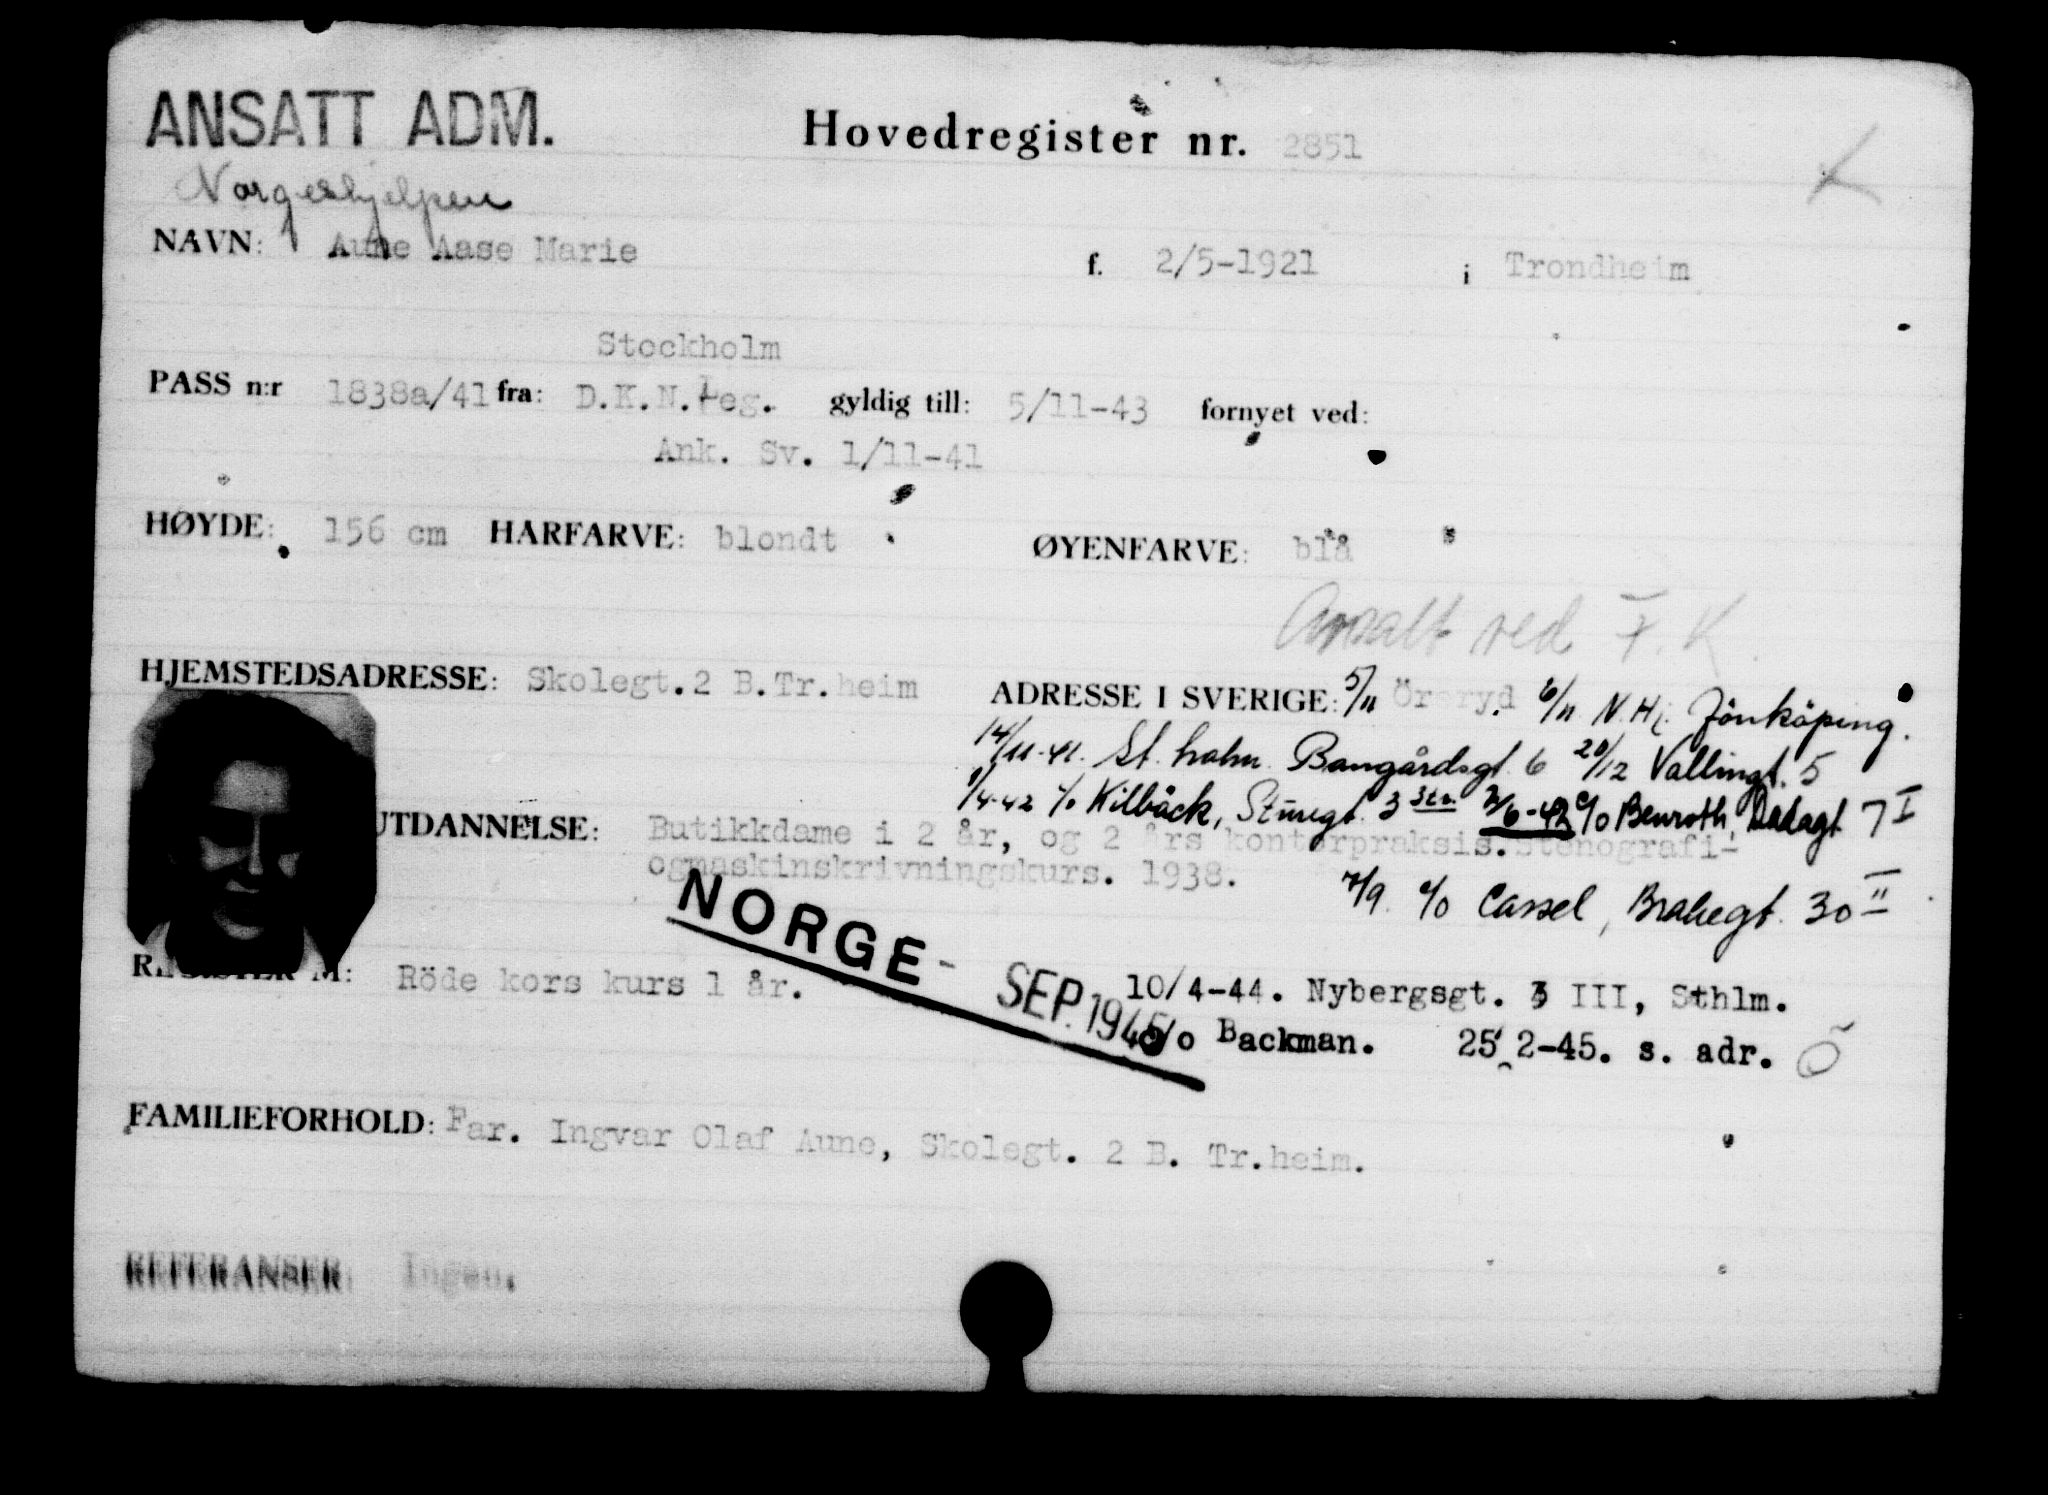 ANSATT ADM.
Hovedregister nr. 2851
Norgeshjelpen
NAVN: Aune Aase Marie f. 2/5-1921 i Trondheim
Stockholm
PASS n:r 1838a/41 fra: D.K.N.Leg. gyldig till: 5/11-43 fornyet ved:
Ank. Sv. 1/11-41
HØYDE: 156 cm HÅRFARVE: blondt ØYENFARVE: blå
Ansatt ved F.K.
HJEMSTEDSADRESSE: Skolegt.2 B.Tr.heim ADRESSE I SVERIGE: 5/11 Öreryd. 6/11 N.Hj. Jönköping.
14/11-41. St.holm Bangårdsgt. 6 20/12 Vallingt. 5
1/4-42 c/o Kilbäck, Sturegt. 3 3 tr. 2/6-42 c/o Benroth, Dalagt 7 I
UTDANNELSE: Butikkdame i 2 år, og 2 års kontorpraksis. Stenografi-
ogmaskinskrivningskurs. 1938.
7/9 c/o Cassel, Brahegt. 30 II
NORGE - SEP. 1945
REGISTER M: Röde kors kurs 1 år.
10/4-44. Nybergsgt. 3 III, Sthlm.
c/o Backman. 25/2-45. s. adr. Ö
FAMILIEFORHOLD: Far. Ingvar Olaf Aune, Skolegt. 2 B. Tr.heim.
REFERANSER: Ingen.